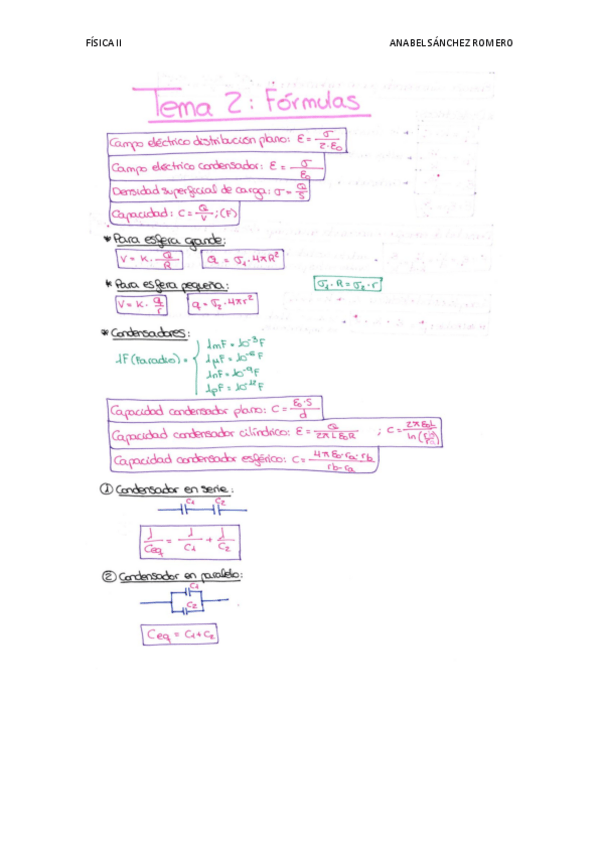 FÍSICA II ANABEL SÁNCHEZ ROMERO
Tema 2: Fórmulas
Campo eléctrico distribución plano: E = σ / 2·ε0
Campo eléctrico condensador: E = σ / ε0
Densidad superficial de carga: σ = Q / S
Capacidad: C = Q / V ; (F)
* Para esfera grande:
V = K · Q / R Q = σ1 · 4πR²
* Para esfera pequeña: σ1 · R = σ2 · r
V = K · q / r q = σ2 · 4πr²
* Condensadores:
1F (Faradio) =
1mF = 10⁻³F
1μF = 10⁻⁶F
1nF = 10⁻⁹F
1pF = 10⁻¹²F
Capacidad condensador plano: C = ε0 · S / d
Capacidad condensador cilíndrico: E = Q / 2πLε0R ; C = 2πε0L / ln
Capacidad condensador esférico: C = 4πε0·ra·rb / rb-ra
① Condensador en serie:
C1 C2
1 / Ceq = 1 / C1 + 1 / C2
② Condensador en paralelo:
C1
C2
Ceq = C1 + C2